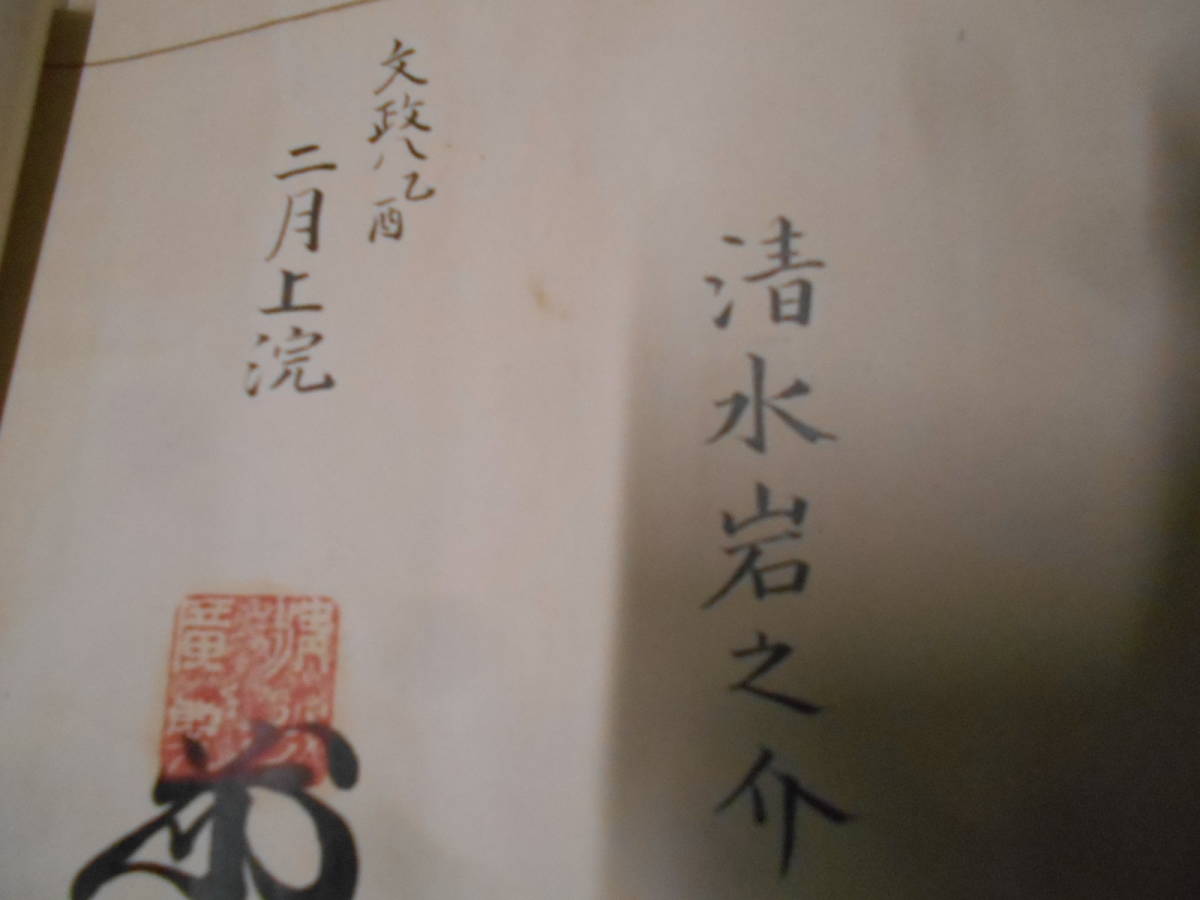 清水岩之介
文政八乙酉
二月上浣